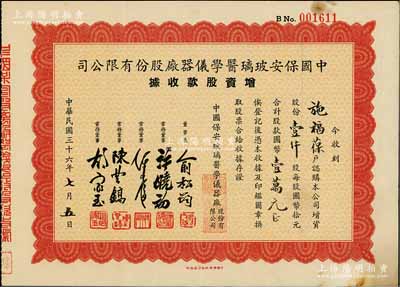 B No. 001611
中國保安玻璃醫學儀器廠股份有限公司
增資股款收據
今收到
施福葆 戶認購本公司增資
股份 壹仟 股每股國幣拾元
合計股款國幣 壹萬元正
俟登記後憑本收據及印鑑圖章換
取股票合給收據存證
中國保安玻璃醫學儀器廠股份有限公司
董事長
常務董事
常務董事
常務董事
中華民國三十六年七月五日
上海陽明拍賣